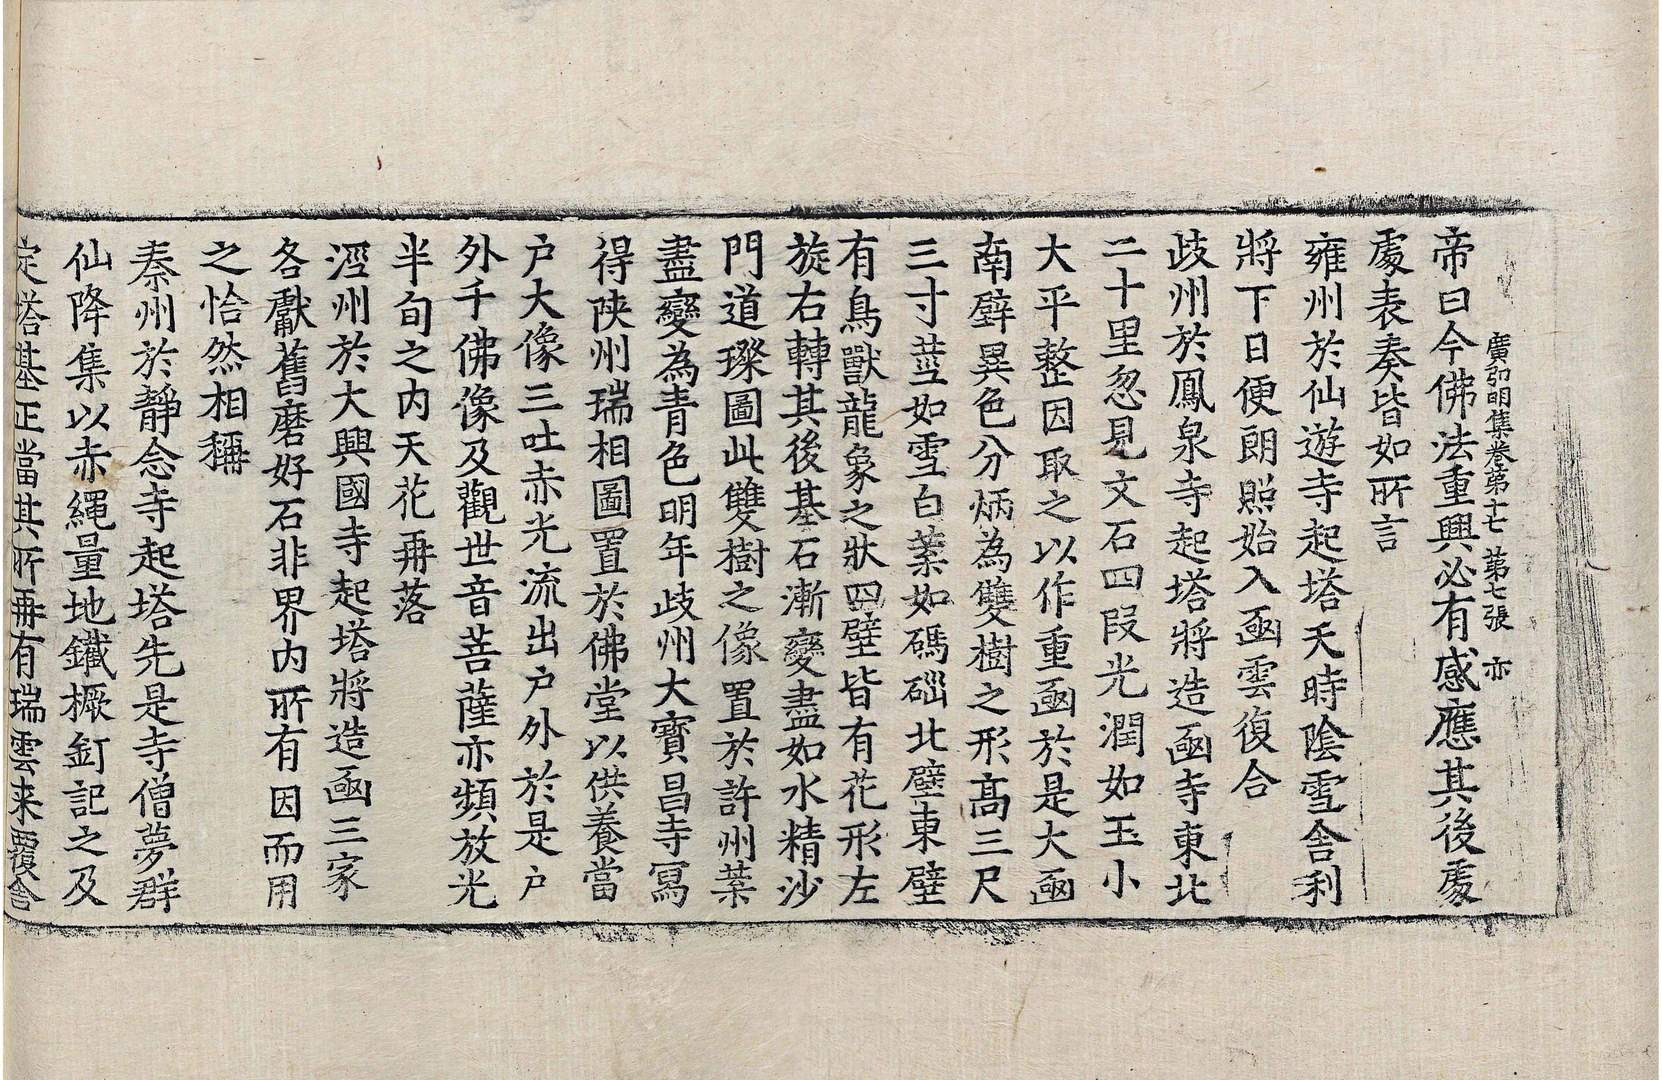 廣弘明集卷第十七 第七張 亦
帝曰今佛法重興必有感應其後處
處表奏皆如所言
雍州於仙遊寺起塔天時陰雪舍利
將下日便朗照始入函雲復合
歧州於鳳泉寺起塔將造函寺東北
二十里忽見文石四段光潤如玉小
大平整因取之以作重函於是大函
南壁異色分炳為雙樹之形高三尺
三寸莖如雪白葉如碼碯北壁東壁
有鳥獸龍象之狀四壁皆有花形左
旋右轉其後基石漸變盡如水精沙
門道璨圖此雙樹之像置於許州葉
盡變為青色明年歧州大寶昌寺寫
得陝州瑞相圖置於佛堂以供養當
户大像三吐赤光流出户外於是户
外千佛像及觀世音菩薩亦頻放光
半旬之内天花再落
涇州於大興國寺起塔將造函三家
各獻舊磨好石非界内所有因而用
之恰然相稱
秦州於靜念寺起塔先是寺僧夢群
仙降集以赤繩量地鐵橛釘記之及
定塔基正當其所再有瑞雲来覆舍